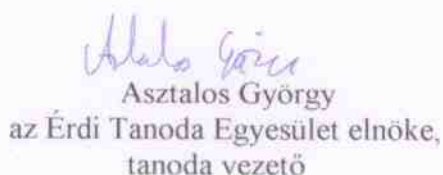 Asztalos György
az Érdi Tanoda Egyesület elnöke,
tanoda vezető